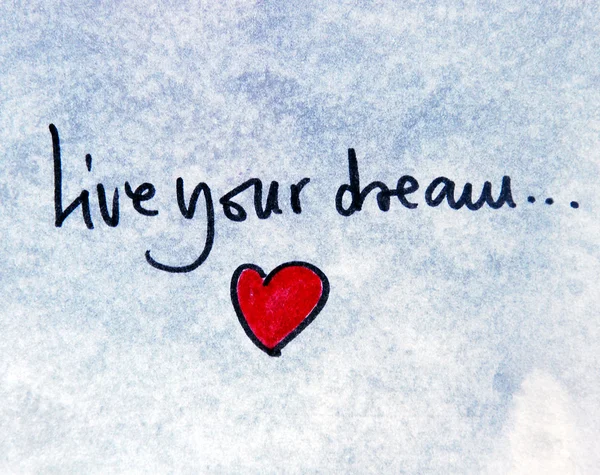 live your dream...